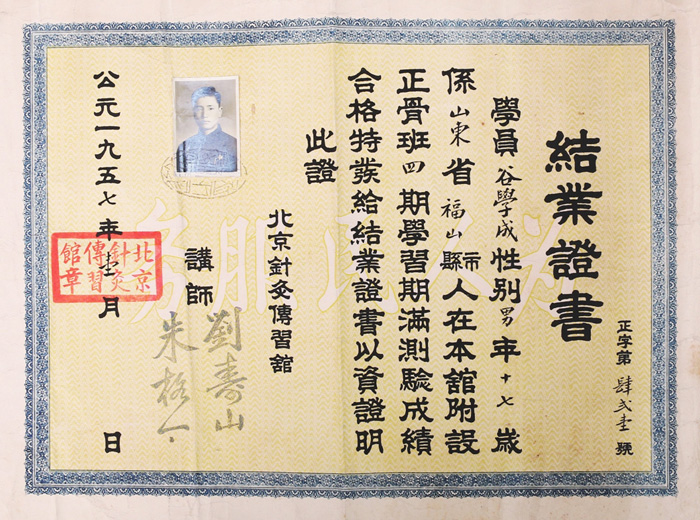 結業證書
正字第肆弍壹號
學員谷學成性別男年十七歲
係山東省福山縣市人在本舘附設
正骨班四期學習期滿測驗成績
合格特發給結業證書以資證明
此證
北京針灸傳習舘
講師
劉壽山
朱格一
公元一九五七年 月 日
北京針灸傳習館章
为人民服务